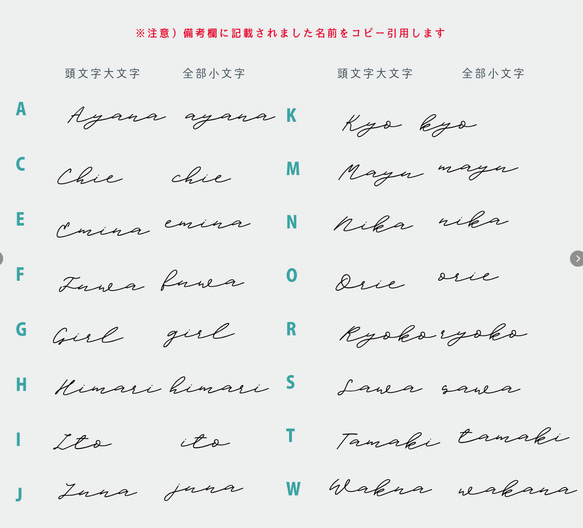 ※注意）備考欄に記載されました名前をコピー引用します
頭文字大文字 全部小文字 頭文字大文字 全部小文字
A Ayana ayana
C Chie chie
E Emina emina
F Fuwa fuwa
G Girl girl
H Himari himari
I Ito ito
J Juna juna
K Kyo kyo
M Mayu mayu
N Nika nika
O Orie orie
R Ryoko ryoko
S Sawa sawa
T Tamaki tamaki
W Wakna wakana